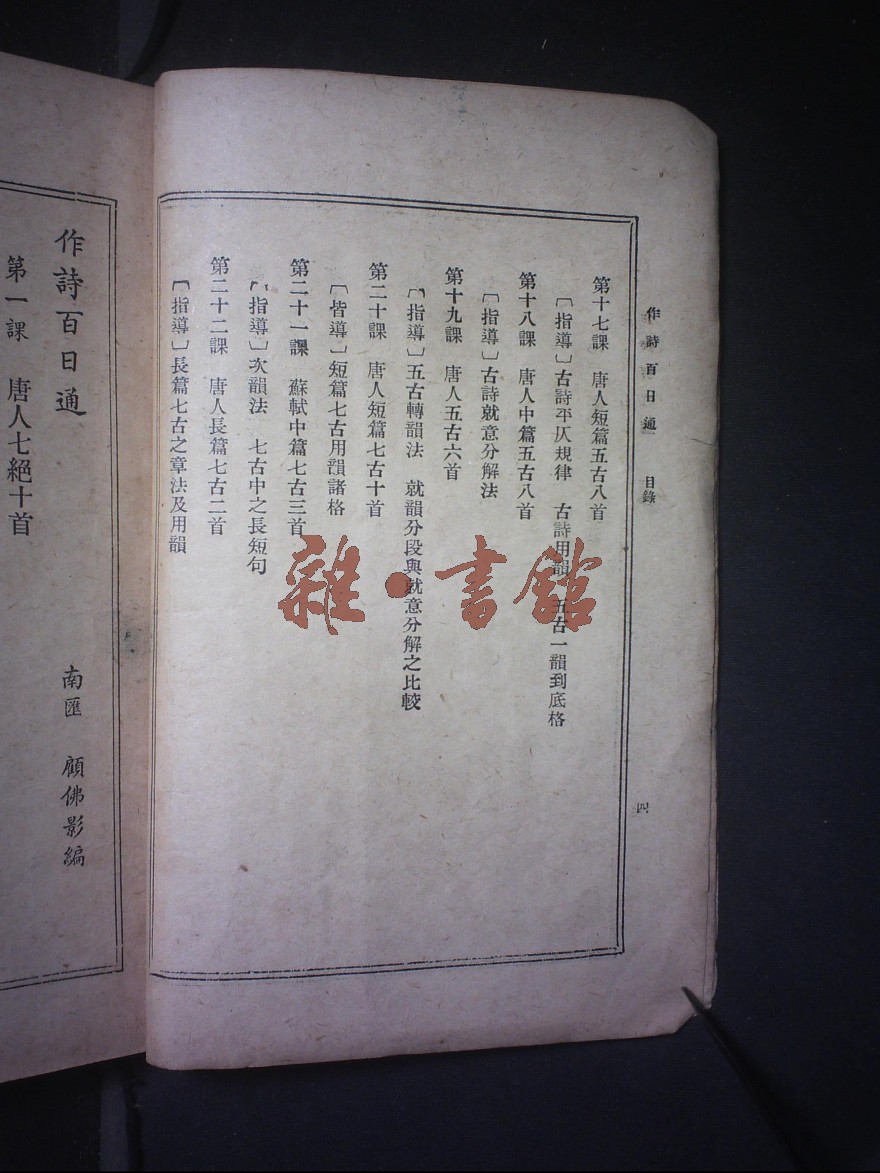 作詩百日通　目錄
四
第十七課　唐人短篇五古八首
〔指導〕古詩平仄規律　古詩用韻　五古一韻到底格
第十八課　唐人中篇五古八首
〔指導〕古詩就意分解法
第十九課　唐人五古六首
〔指導〕五古轉韻法　就韻分段與就意分解之比較
第二十課　唐人短篇七古十首
〔皆導〕短篇七古用韻諸格
第二十一課　蘇軾中篇七古三首
〔指導〕次韻法　七古中之長短句
第二十二課　唐人長篇七古二首
〔指導〕長篇七古之章法及用韻
作詩百日通
南匯　顧佛影編
第一課　唐人七絕十首
雜·書館